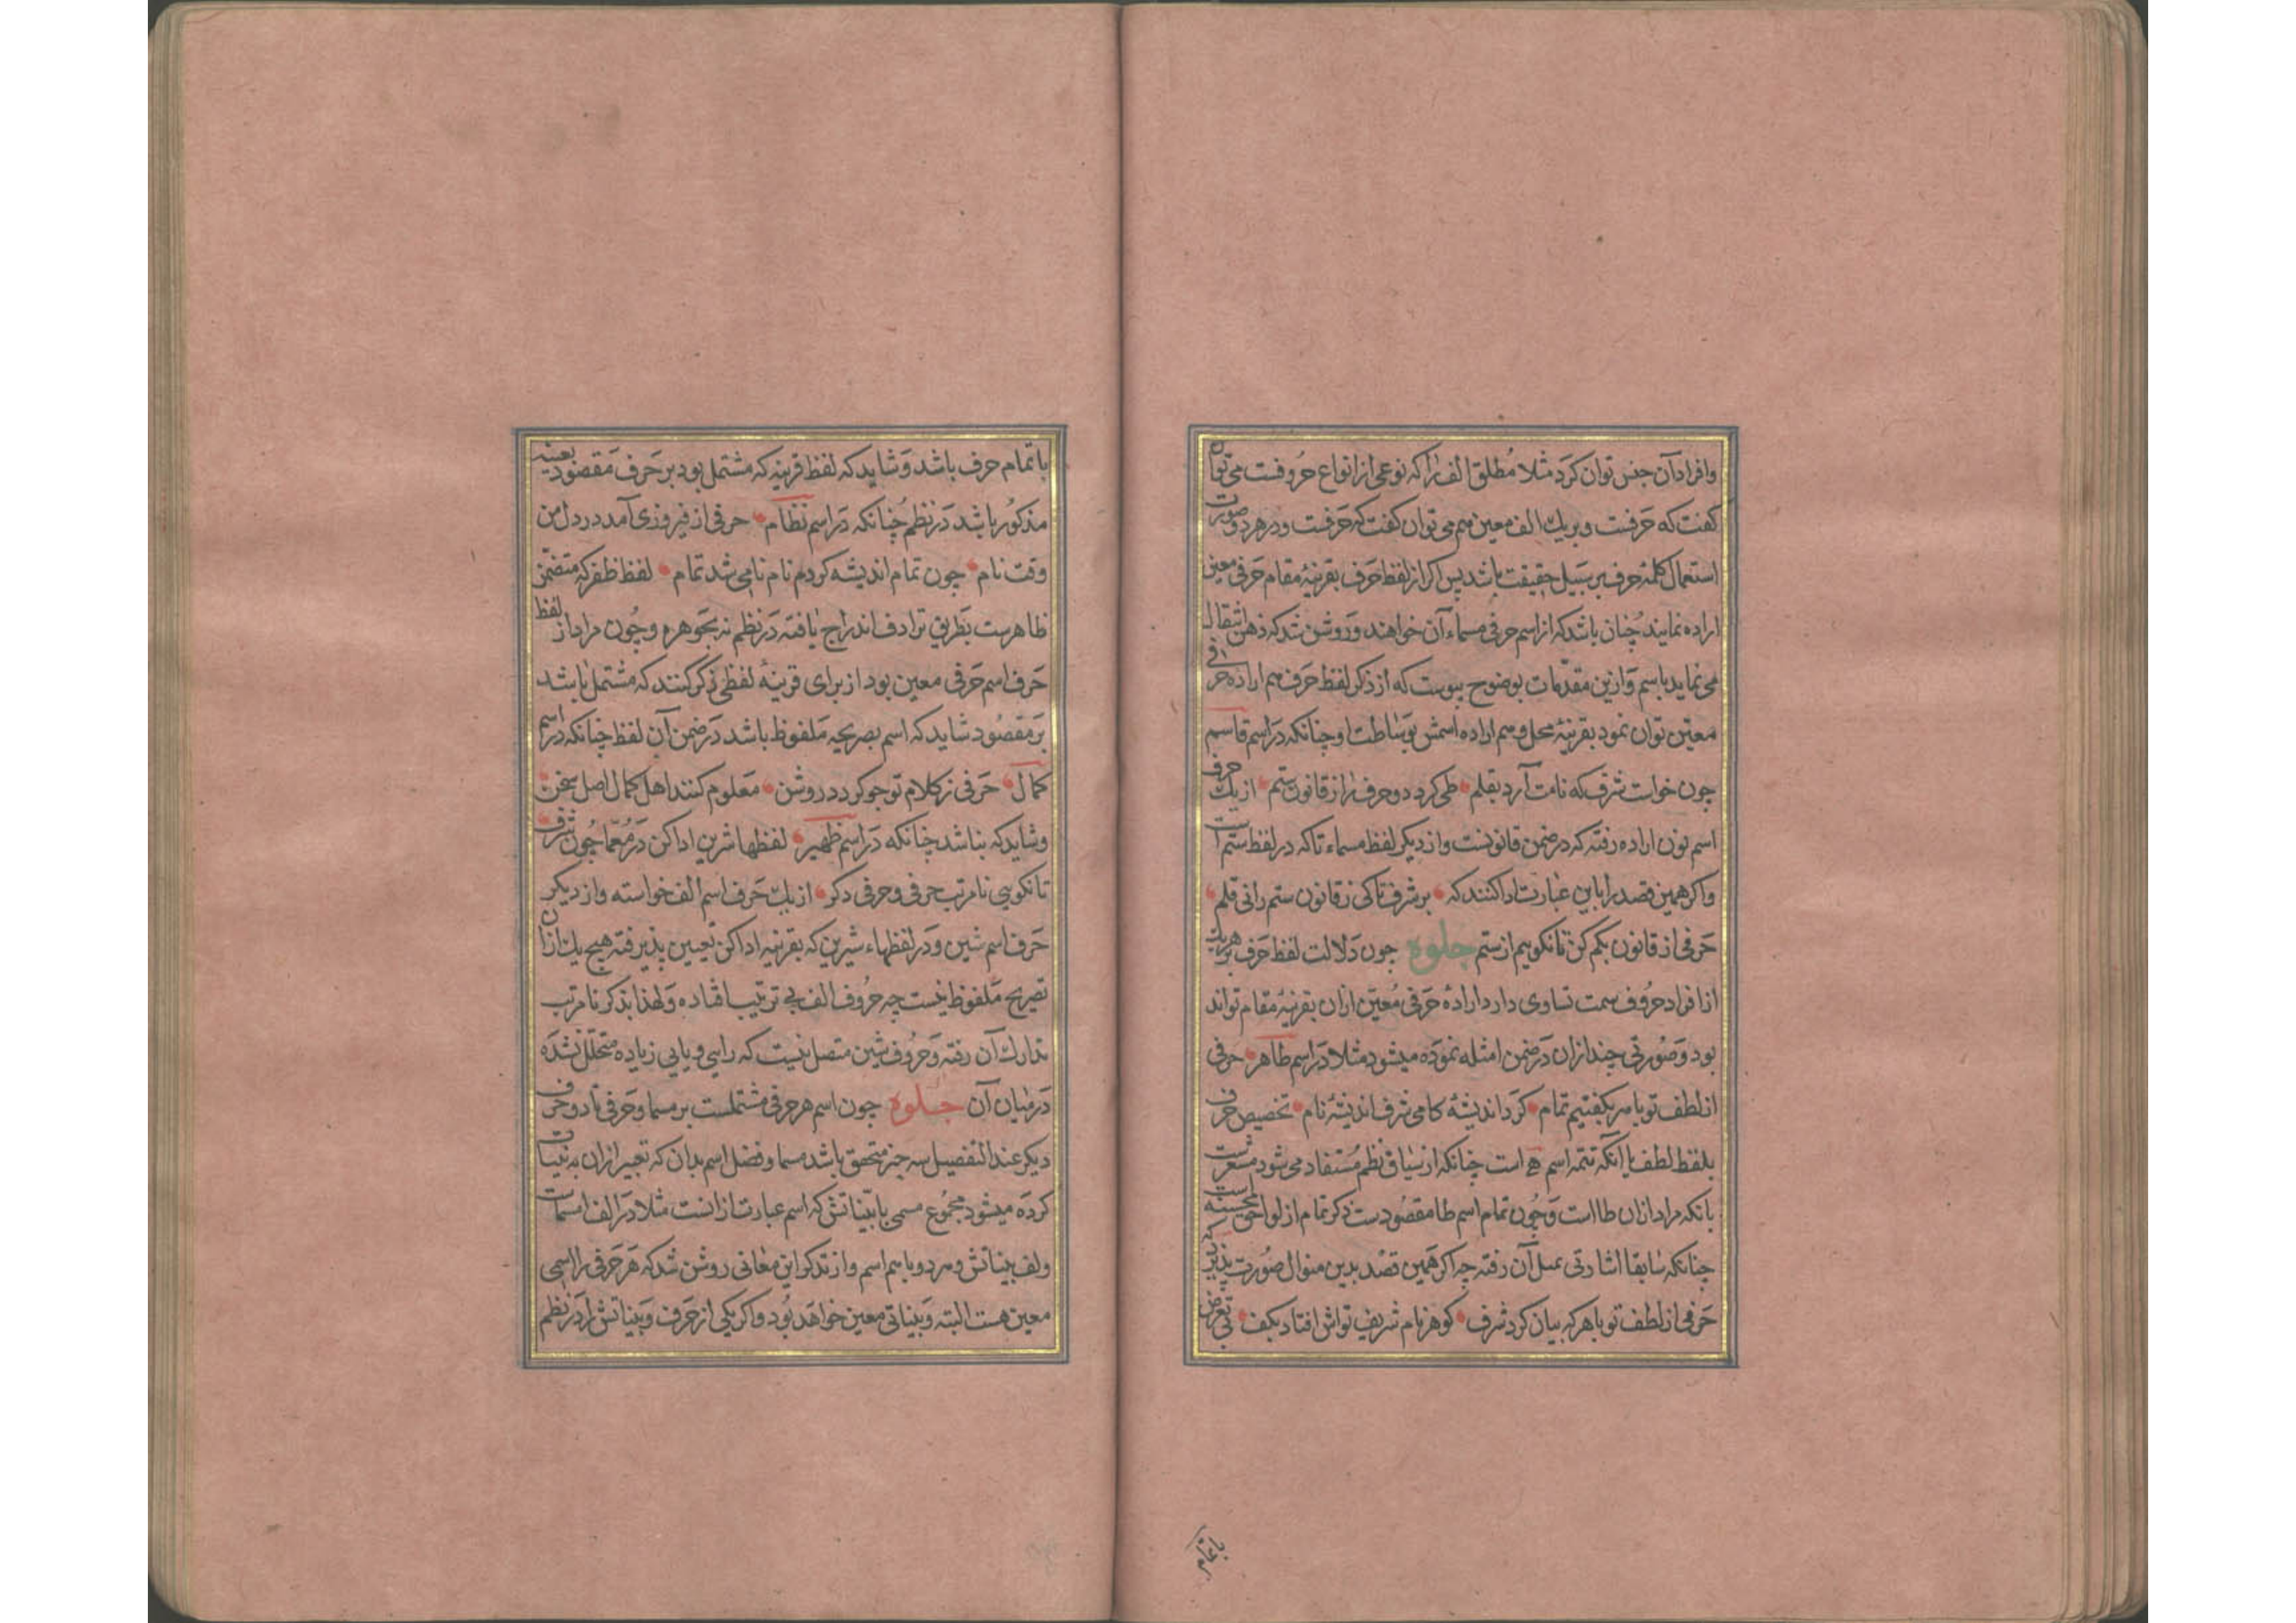 وافراد آن جنس توان کرد مثلا مطلق الف را که نوعی از انواع حروفست می توان
کفت که حرفست و بر یك الف معین هم می توان کفت که حرفست و در هر دو صورت
استعمال کلمهٔ حرف بر سبیل حقیقت باشد پس اکر از لفظ حرف بقرینهٔ مقام حرفی معین
اراده نمایند چنان باشد که از اسم حرفی مسماء آن خواهند و روشن شد که ذهن انتقال
می نماید باسم و ازین مقدمات بوضوح پیوست که از ذکر لفظ حرف هم اراده حرفی
معین توان نمود بقرینهٔ محل و هم اراده اسمش بوساطت او چنانکه در اسم قاسم
چون خواست شرف که نامت آرد بقلم طی کرد دو حرف را ز قانون ستم از یك حرف
اسم نون اراده رفته که در ضمن قانونست و از دیکر لفظ مسماء تا که در لفظ ستم است
واکر همین قصد را باین عبارت ادا کنند که بر شرف تا کی ز قانون ستم رانی قلم
حرفی از قانون بکم کن تا نکوییم از ستم جلوه چون دلالت لفظ حرف بر هریك
از افراد حروف سمت تساوی دارد ارادهٔ حرفی معین ازان بقرینهٔ مقام تواند
بود و صورتی چند ازان در ضمن امثله نموده میشود مثلا در اسم طاهر حرفی
از لطف تو با مه بکفتیم تمام کرد اندیشه کامی شرف اندیشهٔ نام تخصیص حرف
بلفظ لطف با آنکه تتمه اسم هے است چنانکه از سیاق نظم مستفاد می شود مشعرست
بانکه مراد ازان طا است و چون تمام اسم طا مقصودست ذکر تمام از لوا محسنه است
چنانکه سابقا اشارتی بمثل آن رفته چه اکر همین قصد بدین منوال صورت پذیرد که
حرفی از لطف تو با هر که بیان کرد شرف کوهر نام شریف تواش افتاد بکف بی تعرض
با تمام حرف باشد و شاید که لفظ قرینه که مشتمل بود بر حرف مقصود بعینه
مذکور باشد در نظم چنانکه در اسم نظام حرفی از فیروزی آمد در دل من
وقت نام چون تمام اندیشه کردم نام نامی شد تمام لفظ ظفر که متضمن
ظاهرست بطریق ترادف اندراج یافته در نظم نه بجوهره و چون مراد از لفظ
حرف اسم حرفی معین بود از برای قرینهٔ لفظی ذکر کنند که مشتمل باشد
بر مقصود شاید که اسم بصریحه ملفوظ باشد در ضمن آن لفظ چنانکه در اسم
کمال حرفی ز کلام تو جو کردد روشن معلوم کنند اهل کمال اصل سخن
وشاید که بناشد چنانکه در اسم ظهیر لفظها شرین ادا کن در معما چون شرف
تا نکویی نامرتب حرفی و حرفی دکر از یك حرف اسم الف خواسته و از دیکر
حرف اسم شین و در لفظهاء شیرین که بقرینه ادا کن تعیین پذیرفته هیچ یك ازان
تصریح ملفوظ نیست چه حروف الف بی ترتیب افتاده و لهذا بذکر نامرتب
تدارك آن رفته و حروف شین متصل نیست که رایی و یایی زیاده متخلل نشده
در میان آن جلوه چون اسم هر حرفی مشتملست بر مسما و حرفی تا دو حرف
دیکر عند التفصیل سه چیز متحقق باشد مسما و فضل اسم بدان که تعبیر ازان به بینات
کرده میشود مجموع مسمی با بیناتش که اسم عبارت ازانست مثلا در الف ا مسماست
ولف بیناتش و هر دو با هم اسم و از تذکر این معانی روشن شد که هر حرفی را اسمی
معین هست البته و بیناتی معین خواهد بود واکر یکی از حرف و بیناتش را در نظم